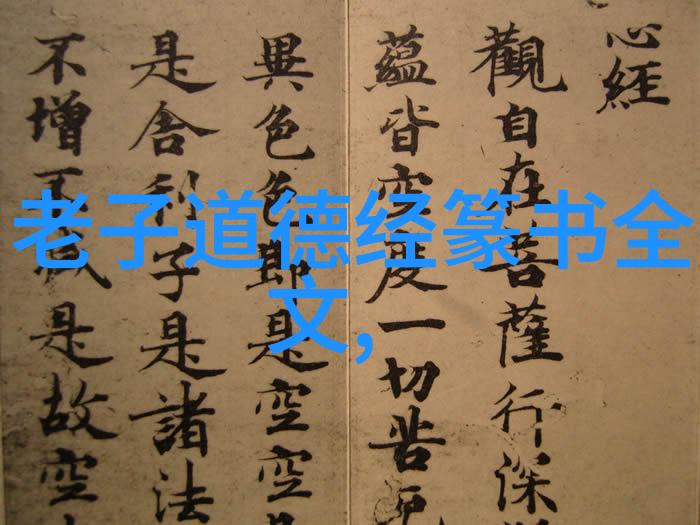 老子道德经篆书全
文,
心經
觀自在菩薩行深
蘊皆空度一切苦厄
異色色即是空空
是舍利子是諸法
不增不減是故空